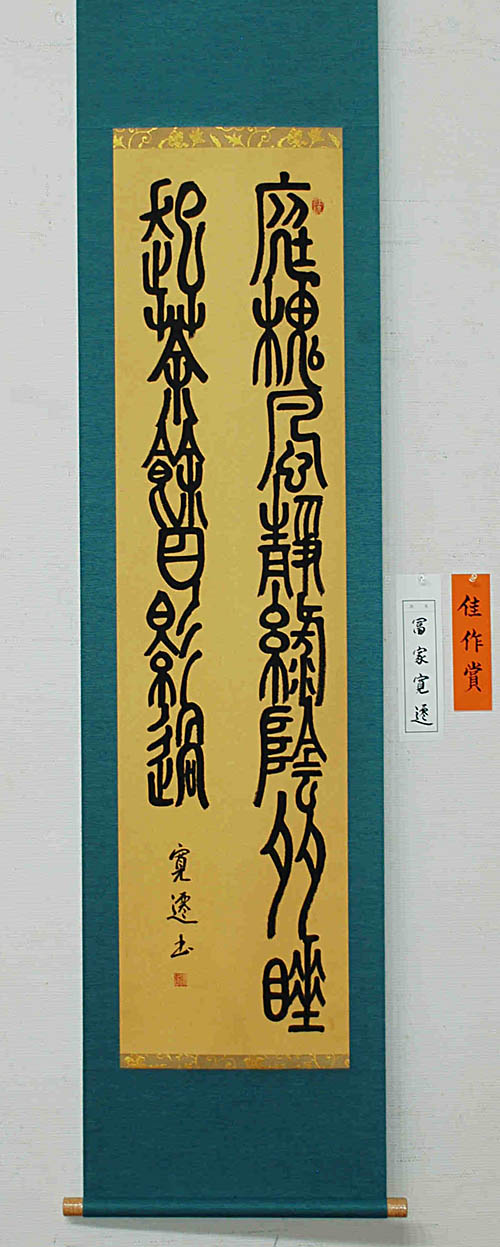 庭槐風静緑陰多睡
起茶餘日影過
寛遷書
冨家寛遷
佳作賞